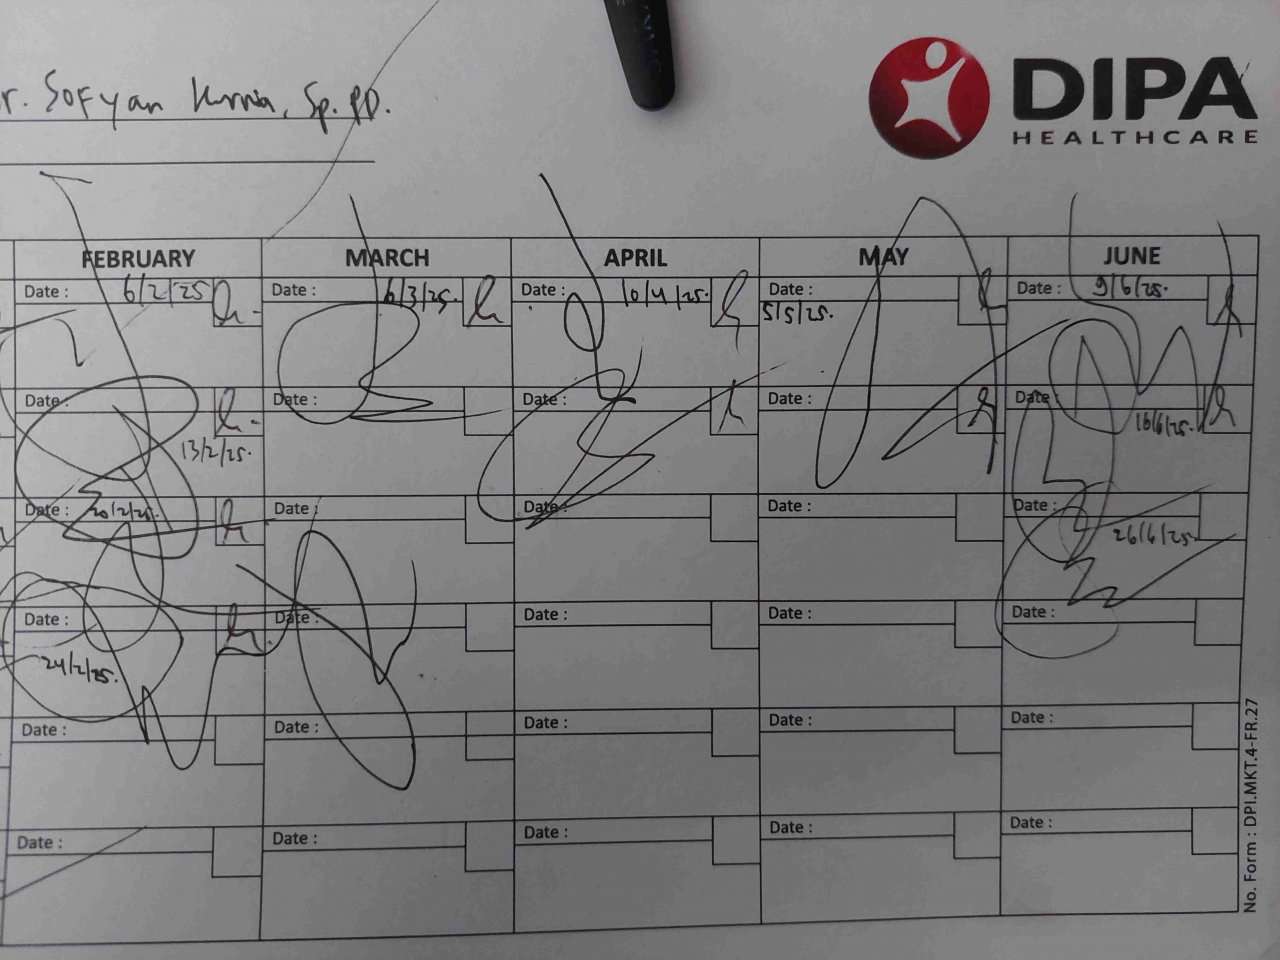 r. Sofyan Kurnia, Sp.PD.
DIPA
HEALTHCARE
FEBRUARY MARCH APRIL MAY JUNE
Date : 6/2/25 Date : 6/3/25. Date : 10/4/25. Date : 5/5/25. Date : 9/6/25.
Date : 13/2/25. Date : Date : Date : Date : 16/6/25.
Date : 20/2/25. Date : Date : Date : Date : 26/6/25.
Date : 24/2/25. Date : Date : Date : Date :
Date : Date : Date : Date : Date :
Date : Date : Date : Date : Date :
No. Form : DPI.MKT.4-FR.27